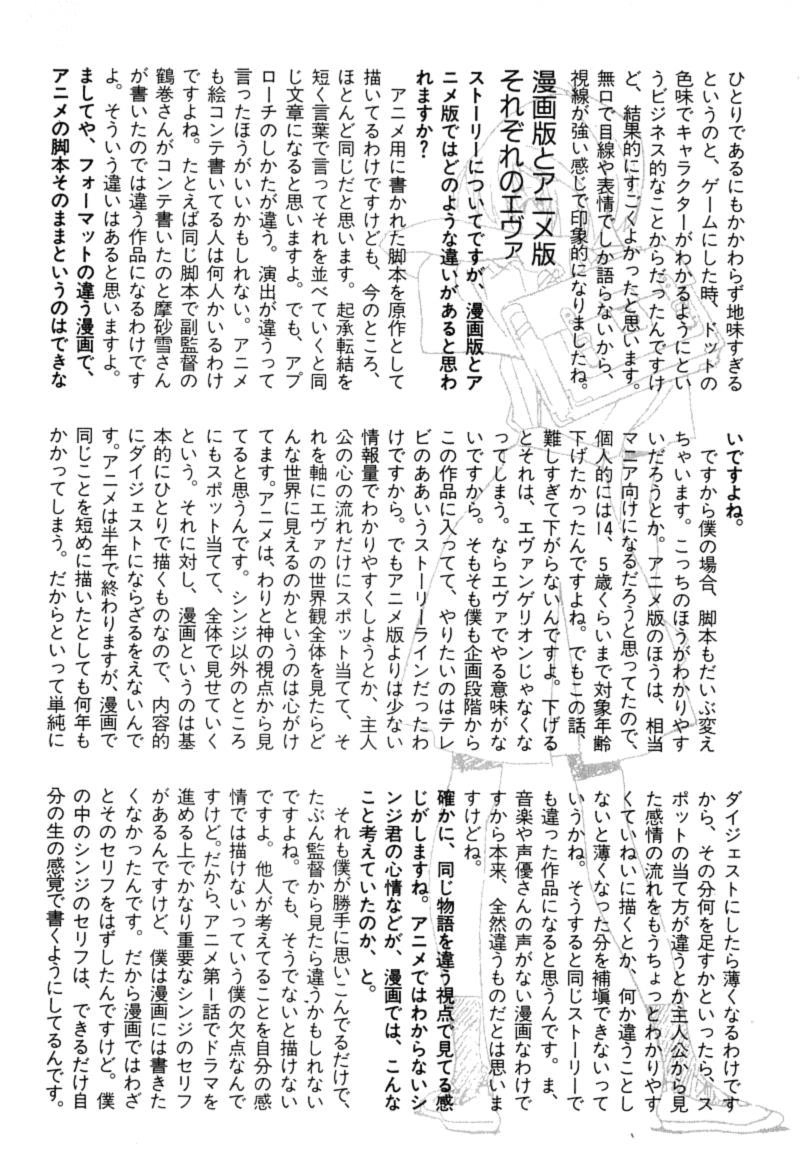 ひとりであるにもかかわらず地味すぎる
というのと、ゲームにした時、ドットの
色味でキャラクターがわかるようにとい
うビジネス的なことからだったんですけ
ど、結果的にすごくよかったと思います。
無口で目線や表情でしか語らないから、
視線が強い感じで印象的になりましたね。
漫画版とアニメ版
それぞれのエヴァ
ストーリーについてですが、漫画版とア
ニメ版ではどのような違いがあると思わ
れますか?
アニメ用に書かれた脚本を原作として
描いてるわけですけども、今のところ、
ほとんど同じだと思います。起承転結を
短く言葉で言ってそれを並べていくと同
じ文章になると思いますよ。でも、アプ
ローチのしかたが違う。演出が違うって
言ったほうがいいかもしれない。アニメ
も絵コンテ書いてる人は何人かいるわけ
ですよね。たとえば同じ脚本で副監督の
鶴巻さんがコンテ書いたのと摩砂雪さん
が書いたのでは違う作品になるわけです
よ。そういう違いはあると思いますよ。
ましてや、フォーマットの違う漫画で、
アニメの脚本そのままというのはできな
いですよね。
ですから僕の場合、脚本もだいぶ変え
ちゃいます。こっちのほうがわかりやす
いだろうとか。アニメ版のほうは、相当
マニア向けになるだろうと思ってたので、
個人的には14、5歳くらいまで対象年齢
下げたかったんですよね。でもこの話、
難しすぎて下がらないんですよ。下げる
とそれは、エヴァンゲリオンじゃなくな
ってしまう。ならエヴァでやる意味がな
いですから。そもそも僕も企画段階から
この作品に入ってて、やりたいのはテレ
ビのああいうストーリーラインだったわ
けですから。でもアニメ版よりは少ない
情報量でわかりやすくしようとか、主人
公の心の流れだけにスポット当てて、そ
れを軸にエヴァの世界観全体を見たらど
んな世界に見えるのかというのは心がけ
てます。アニメは、わりと神の視点から見
てると思うんです。シンジ以外のところ
にもスポット当てて、全体で見せていく
という。それに対し、漫画というのは基
本的にひとりで描くものなので、内容的
にダイジェストにならざるをえないんで
す。アニメは半年で終わりますが、漫画で
同じことを短めに描いたとしても何年も
かかってしまう。だからといって単純に
ダイジェストにしたら薄くなるわけです
から、その分何を足すかといったら、ス
ポットの当て方が違うとか主人公から見
た感情の流れをもうちょっとわかりやす
くていねいに描くとか、何か違うことし
ないと薄くなった分を補塡できないって
いうかね。そうすると同じストーリーで
も違った作品になると思うんです。ま、
音楽や声優さんの声がない漫画なわけで
すから本来、全然違うものだとは思いま
すけどね。
確かに、同じ物語を違う視点で見てる感
じがしますね。アニメではわからないシ
ンジ君の心情などが、漫画では、こんな
こと考えていたのか、と。
それも僕が勝手に思いこんでるだけで、
たぶん監督から見たら違うかもしれない
ですよね。でも、そうでないと描けない
ですよ。他人が考えてることを自分の感
情では描けないっていう僕の欠点なんで
すけど。だから、アニメ第1話でドラマを
進める上でかなり重要なシンジのセリフ
があるんですけど、僕は漫画には書きた
くなかったんです。だから漫画ではわざ
とそのセリフをはずしたんですけど。僕
の中のシンジのセリフは、できるだけ自
分の生の感覚で書くようにしてるんです。